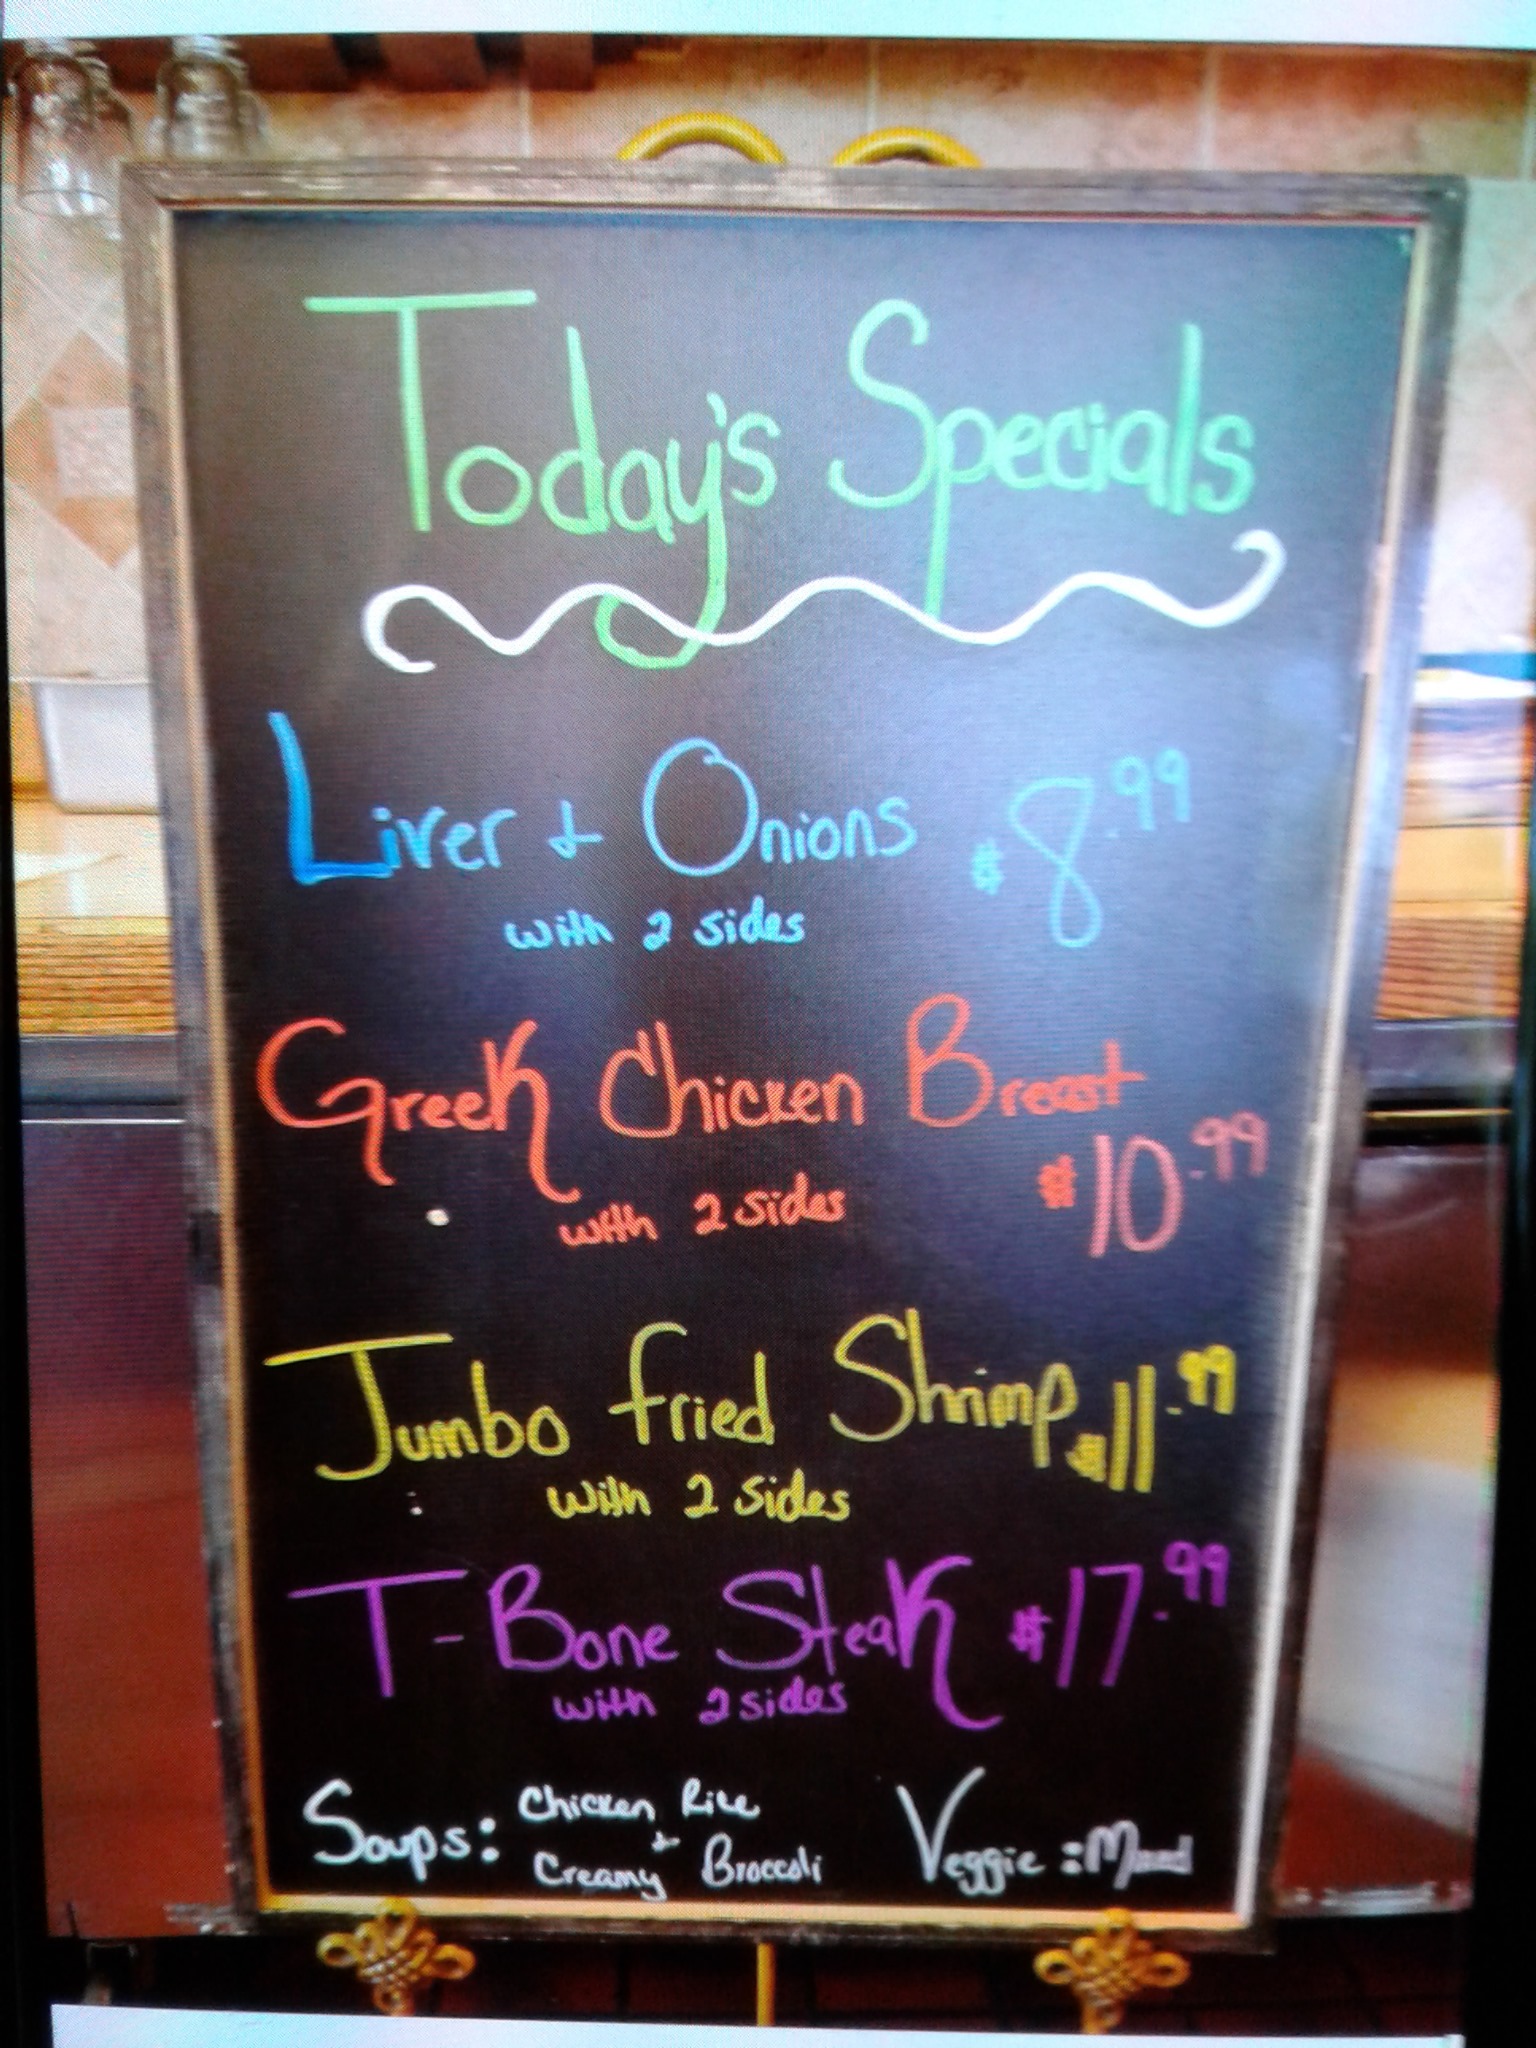 Today's Specials
Liver + Onions $8.99
with 2 sides
Greek Chicken Breast
with 2 sides $10.99
Jumbo fried Shrimp $11.99
with 2 sides
T-Bone Steak $17.99
with 2 sides
Soups: Chicken Rice
+
Creamy Broccoli Veggie: